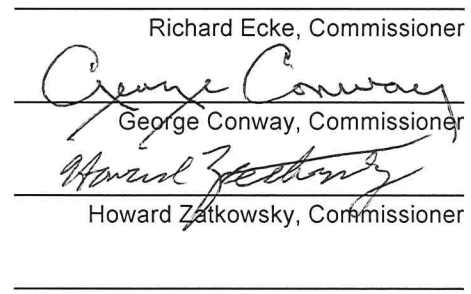 Richard Ecke, Commissioner
George Conway
George Conway, Commissioner
Howard Zatkowsky
Howard Zatkowsky, Commissioner